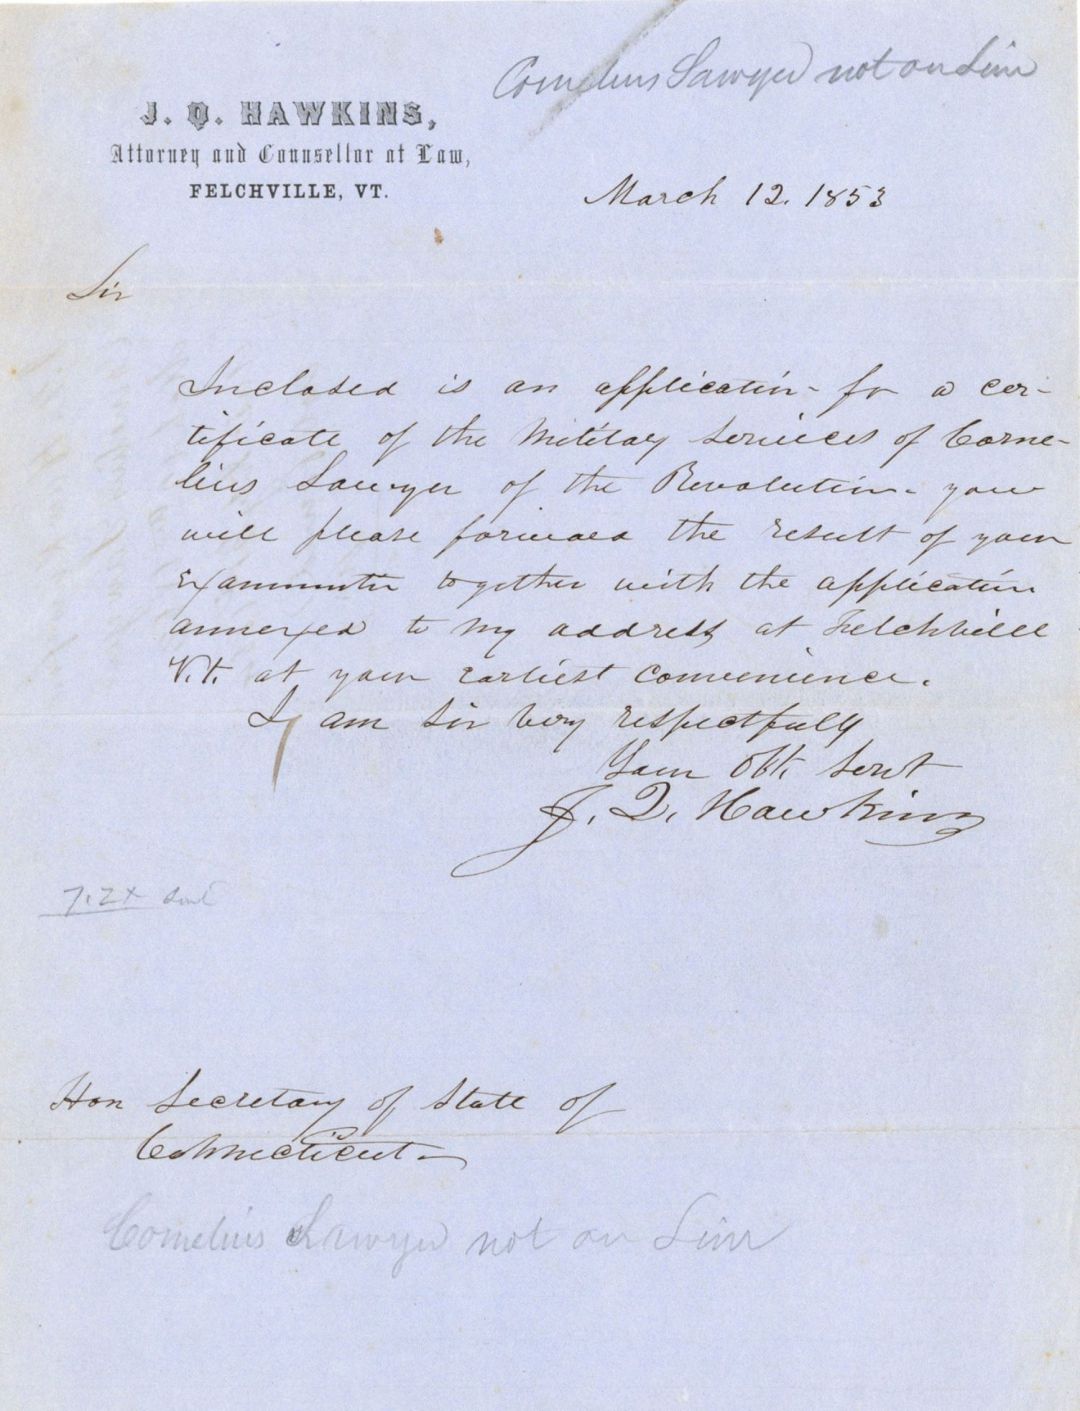 Cornelius Sawyer not on Line
J. Q. HAWKINS,
Attorney and Counsellor at Law,
FELCHVILLE, VT.
March 12. 1853
Sir
Inclosed is an application for a cer-
tificate of the Military Services of Corne-
lius Sawyer of the Revolution. you
will please forward the result of your
Examination together with the application
annexed to my address at Felchville
V.T. at your earliest convenience.
I am Sir Very respectfully
Your Obt. Servt
J. Q. Hawkins
Hon Secretary of State of
Connecticut
Cornelius Sawyer not on Line